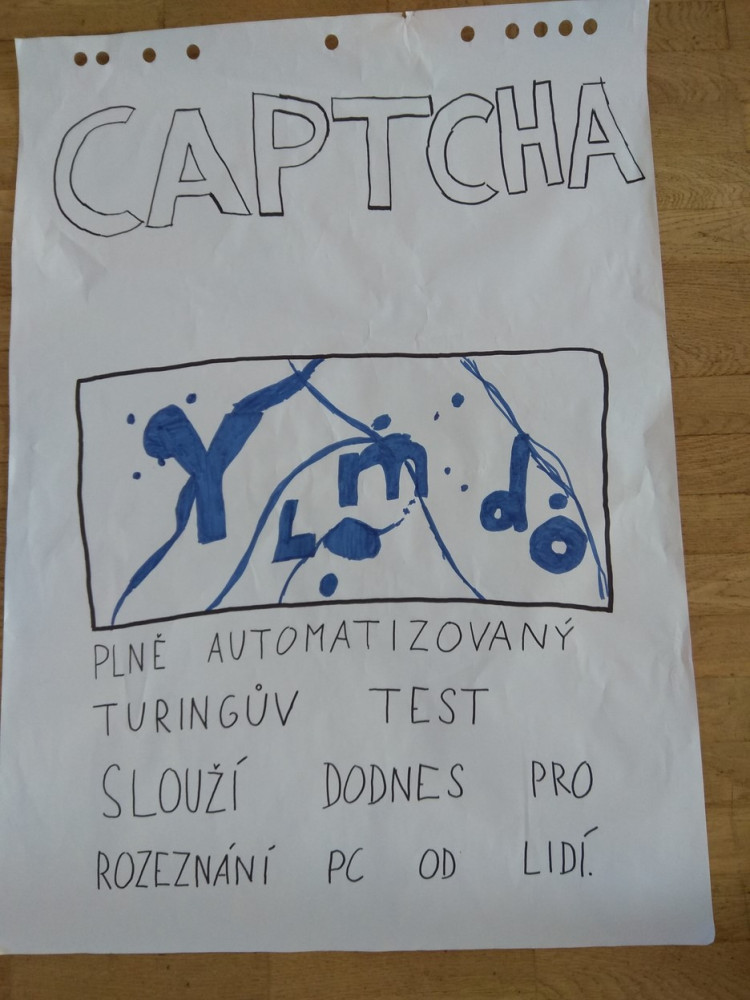 CAPTCHA
Y L m d o
PLNĚ AUTOMATIZOVANÝ
TURINGŮV TEST
SLOUŽÍ DODNES PRO
ROZEZNÁNÍ PC OD LIDÍ.